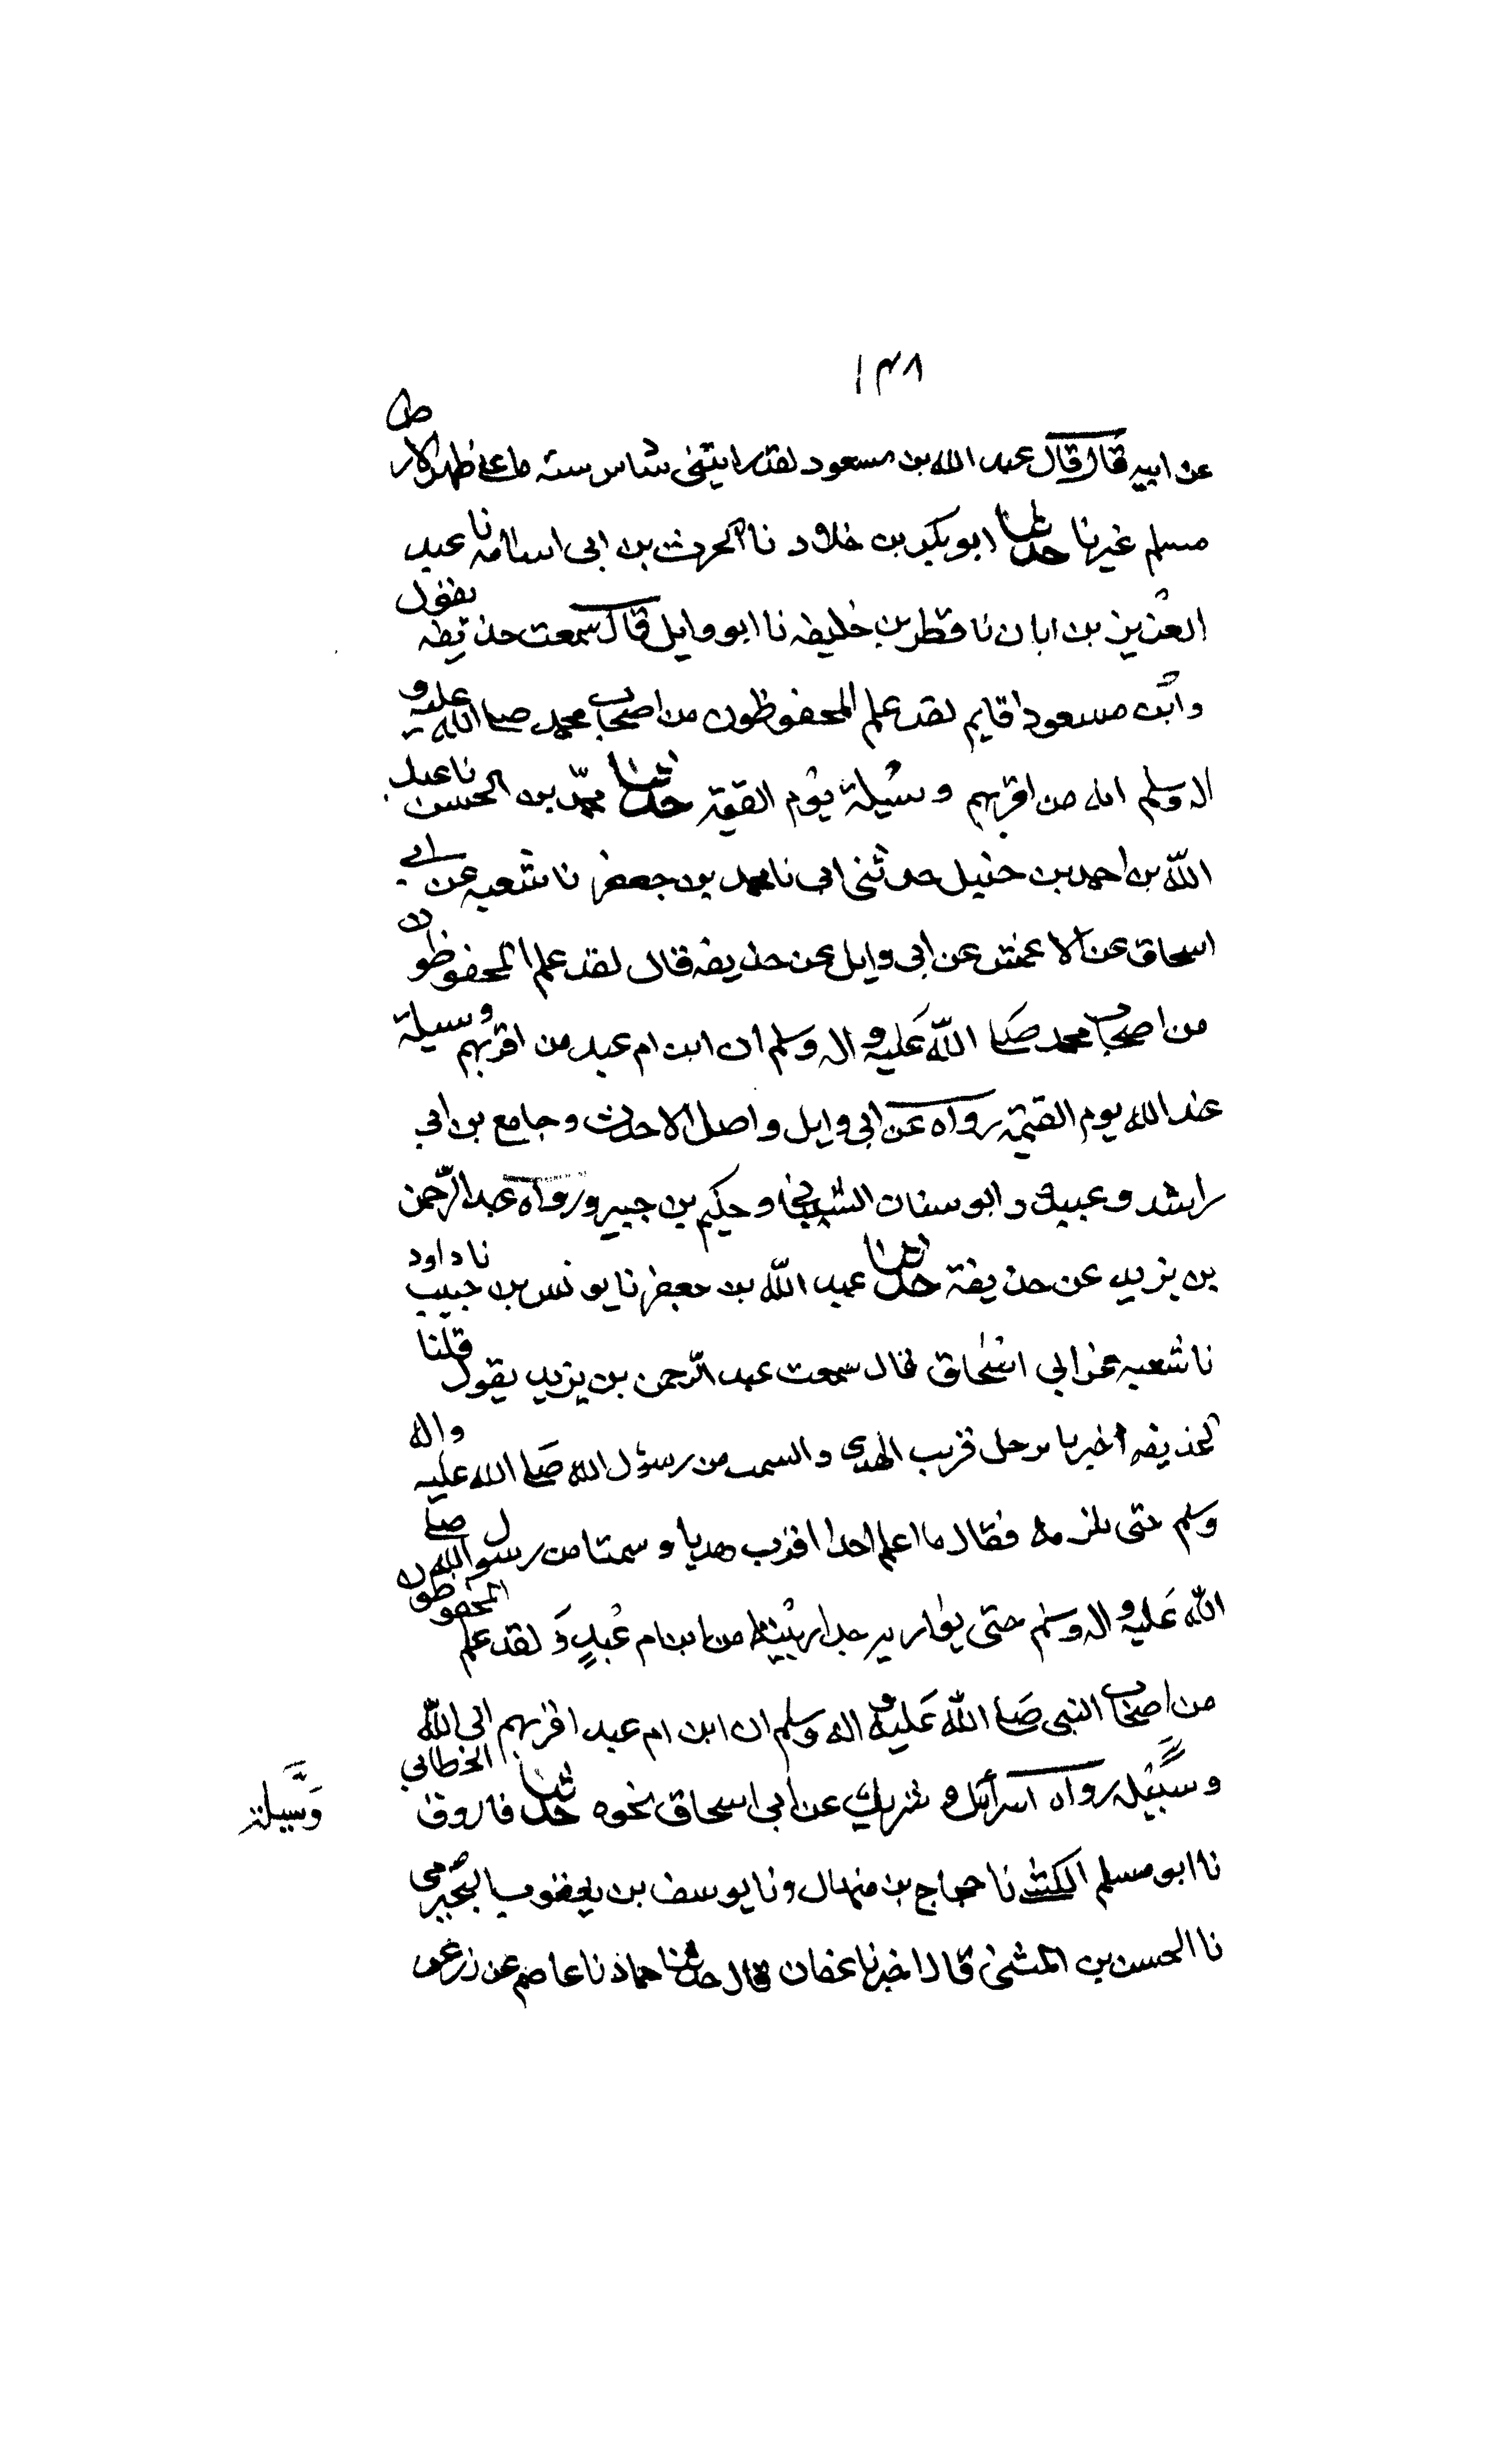 ١٣٨
عن ابيه قال قال عبد الله بن مسعود لقد رايتنى سادس ستة ما على ظهر الارض
مسلم غيرنا حدثنا ابو بكر بن خلاد نا الحرث بن ابى اسامه نا عبد
العزيز بن ابان نا فطر بن خليفه نا ابو وايل قال سمعت حذيفه يقول
وابن مسعود قايم لقد علم المحفوظون من اصحاب محمد صلى الله عليه و
اله وسلم انه من اقربهم وسيلة يوم القيمة حدثنا محمّد بن الحسن نا عبد
اللّه بن احمد بن حنبل حدثنى ابى نا محمد بن جعفر نا شعبه عن ابي
اسحاق عن الاعمش عن ابى وايل عن حذيفه قال لقد علم المحفوظون
من اصحاب محمد صَلى اللّه عَليه و اله وسلم ان ابن ام عبد من اقربهم وسيلة
عند الله يوم القيمة رواه عن ابى وايل واصل الاحدب وجامع بن ابي
راشد وعبيدة وابو سنان الشيبانى وحكيم بن جبير ورواه عبد الرّحمن
بن يزيد عن حذيفة حدثنا عبد اللّه بن جعفر نا يونس بن حبيب نا داود
نا شعبه عن ابي اسحاق قال سمعت عبد الرّحمن بن يزيد يقول قلنا
لحذيفه اخبرنا برجل قريب الهدى والسمت من رسول الله صَلى الله عليه واله
وسلم حتى نلزمه فقال ما اعلم احدا اقرب هديا وسمتا من رسول الله صلى
اللّه عَليه و اله وسلم حتى يواريه جدار بيته من ابن ام عَبدٍ وَ لقد علم المحفوظون
من اصحاب النبى صَلى اللّه عَليه و اله وسلم ان ابن ام عبد اقربهم الى اللّه
وسيله رواه اسرائيل و شريك عن ابى اسحاق نحوه حدثنا فاروق الخطابي
وَسيلة
نا ابو مسلم الكشى نا حجاج بن منهال ونا يوسف بن يعقوب النجيرمى
نا الحسن بن المثنى قالا اخبرنا عفان قال حدثنا حماد نا عاصم عن زر عن